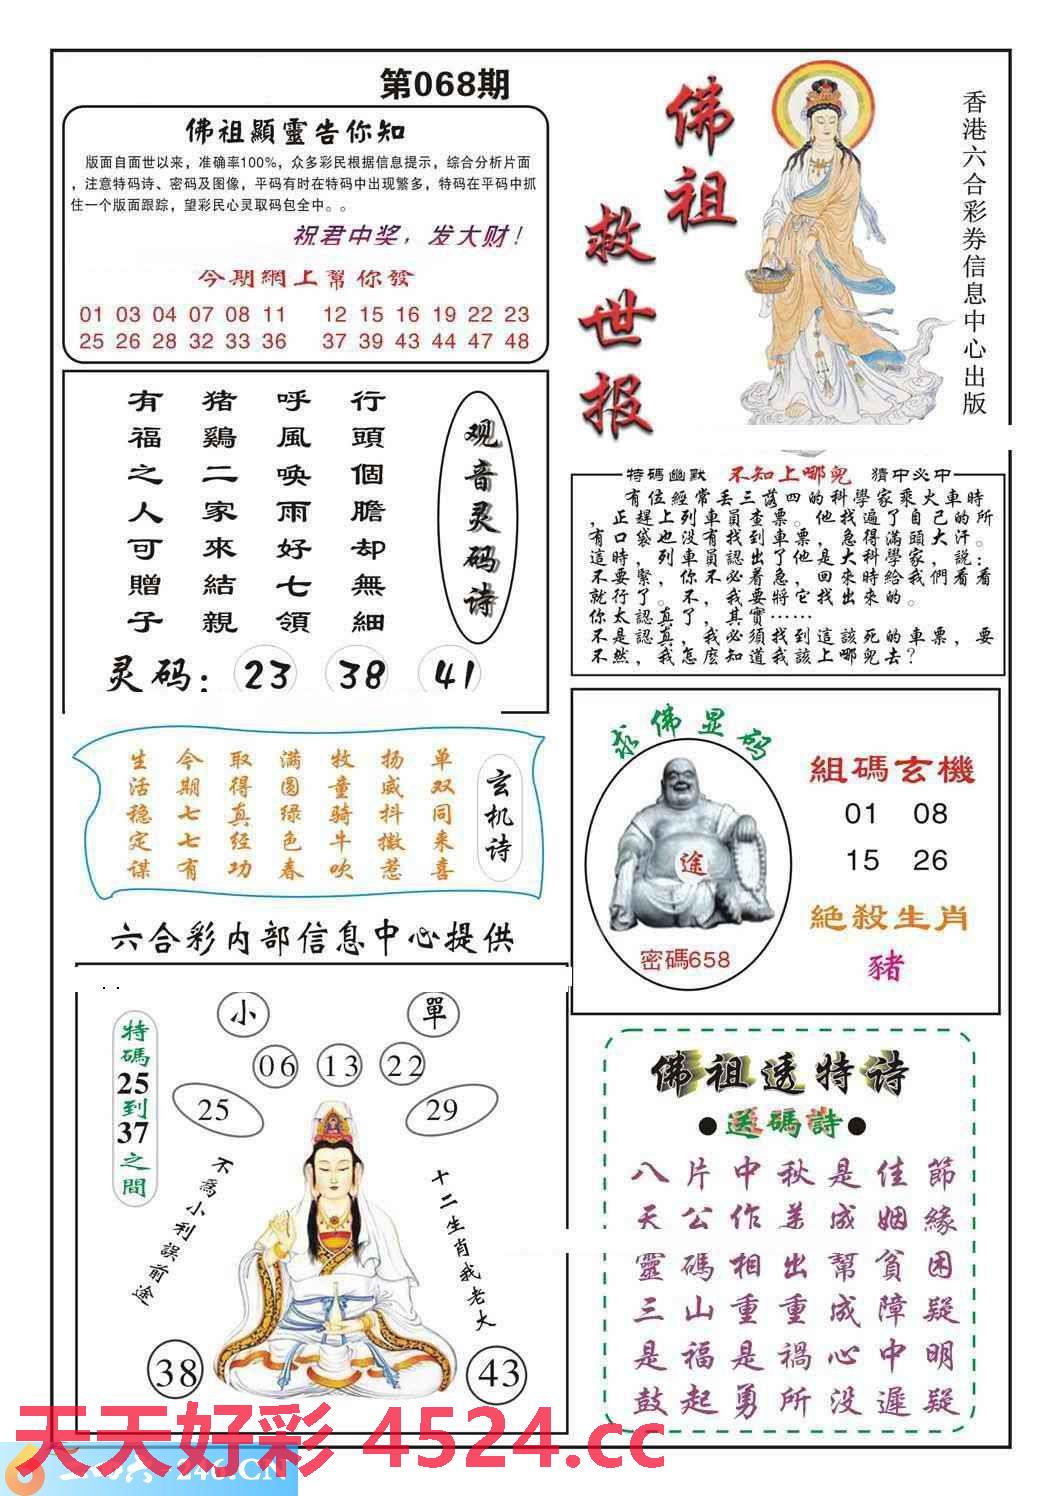 第068期
佛祖顯靈告你知
版面自面世以来，准确率100%，众多彩民根据信息提示，综合分析片面
，注意特码诗、密码及图像，平码有时在特码中出现繁多，特码在平码中抓
住一个版面跟踪，望彩民心灵取码包全中。。
祝君中奖，发大财！
今期網上幫你發
01 03 04 07 08 11 12 15 16 19 22 23
25 26 28 32 33 36 37 39 43 44 47 48
佛祖
救世报
香港六合彩券信息中心出版
观音灵码诗
行頭個膽却無細
呼風喚雨好七領
猪鷄二家來結親
有福之人可贈子
灵码：23 38 41
特碼幽默 不知上哪兒 猜中必中
有位經常丢三落四的科學家乘火車時
，正趕上列車員查票。他找遍了自己的所
有口袋也没有找到車票，急得滿頭大汗。
這時，列車員認出了他是大科學家，説：
不要緊，你不必着急，回來時給我們看看
就行了。不，我要將它找出來的。
你太認真了，其實……
不是認真，我必須找到這該死的車票，要
不然，我怎麽知道我該上哪兒去？
玄机诗
单双同来喜
扬威抖擞惹
牧童骑牛吹
满圆绿色春
取得真经功
今期七七有
生活稳定谋
求佛显码
途
密碼658
組碼玄機
01 08
15 26
絶殺生肖
豬
六合彩内部信息中心提供
特碼25到37之間
小
單
06 13 22
25
29
不爲小利誤前途
十二生肖我老大
38
43
佛祖透特诗
●送碼詩●
八片中秋是佳節
天公作美成姻緣
靈碼相出幫貧困
三山重重成障疑
是福是禍心中明
鼓起勇所没遲疑
天天好彩 4524.cc
246.CN